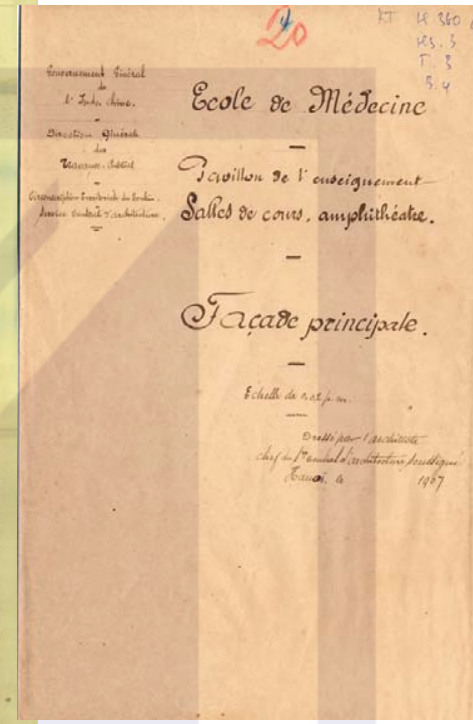 20
KT H 360
HS. 3
T. 3
B. 4
Gouvernement Général
de
l'Indo-Chine.
Direction Générale
des
Travaux Publics
Circonscription Territoriale du Tonkin.
Service Central d'architecture.
Ecole de Médecine
Pavillon de l'enseignement
Salles de cours, amphithéâtre.
Façade principale.
Echelle de 0.02 p.m.
Dressé par l'architecte
chef du Sce central d'architecture soussigné
Hanoi, le 1907